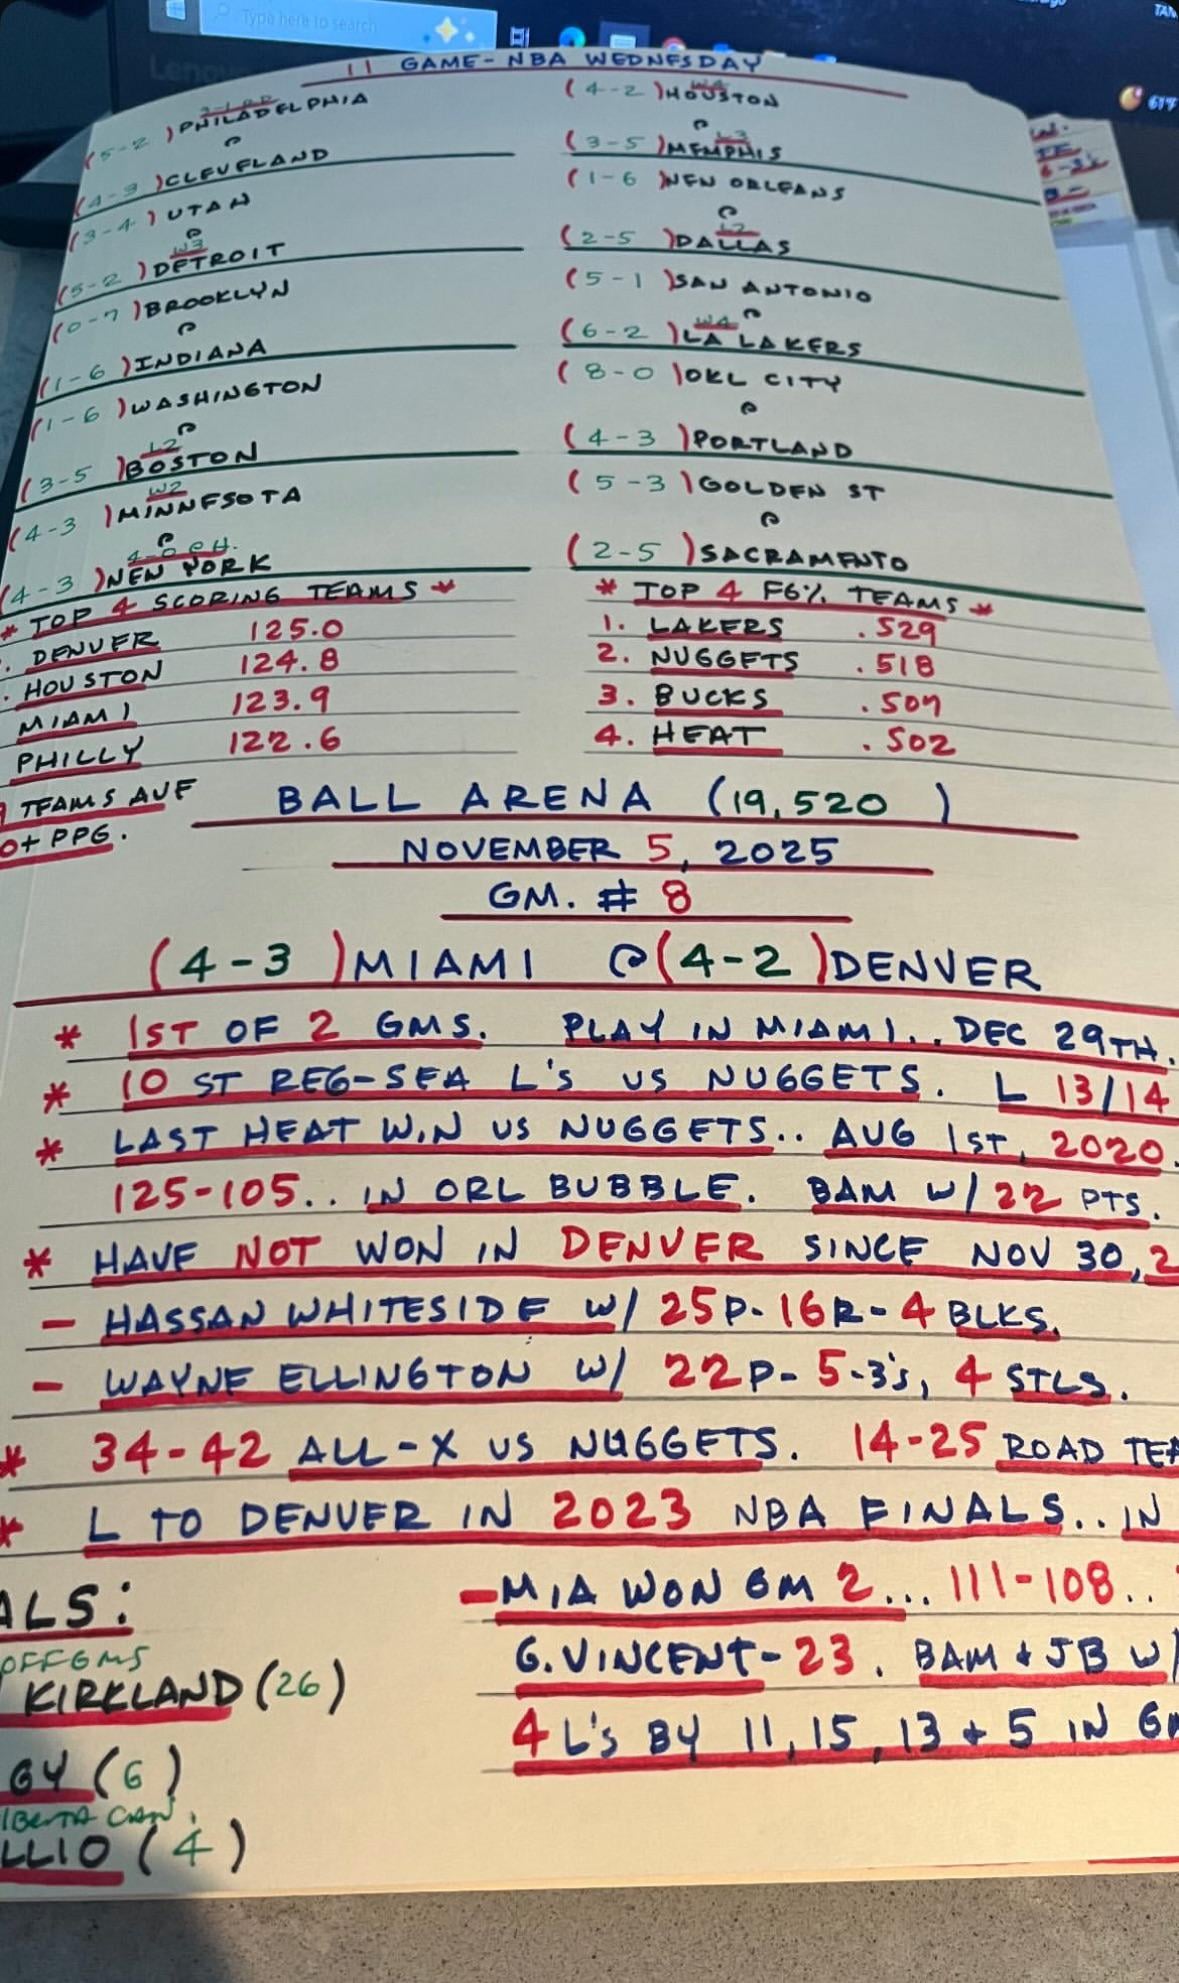 Type here to search
Leno
61°F
11 GAME-NBA WEDNESDAY
(5-2) PHILADELPHIA
@
(4-3) CLEVELAND
(3-4) UTAH
@
W3
(5-2) DETROIT
(0-7) BROOKLYN
@
(1-6) INDIANA
(1-6) WASHINGTON
@
L2
(3-5) BOSTON
W2
(4-3) MINNESOTA
@
4-0 @H.
(4-3) NEW YORK
W4
(4-2) HOUSTON
@
L3
(3-5) MEMPHIS
(1-6) NEW ORLEANS
@
L2
(2-5) DALLAS
(5-1) SAN ANTONIO
@
W4
(6-2) LA LAKERS
(8-0) OKL CITY
@
(4-3) PORTLAND
(5-3) GOLDEN ST
@
(2-5) SACRAMENTO
* TOP 4 SCORING TEAMS *
. DENVER 125.0
. HOUSTON 124.8
MIAMI 123.9
PHILLY 122.6
TEAMS AVE
0+ PPG.
* TOP 4 FG% TEAMS *
1. LAKERS .529
2. NUGGETS .518
3. BUCKS .507
4. HEAT .502
BALL ARENA (19,520)
NOVEMBER 5, 2025
GM. # 8
(4-3) MIAMI @ (4-2) DENVER
* 1ST OF 2 GMS. PLAY IN MIAMI.. DEC 29TH.
* 10 ST REG-SEA L's VS NUGGETS. L 13/14
* LAST HEAT WIN VS NUGGETS.. AUG 1ST, 2020.
125-105.. IN ORL BUBBLE. BAM W/ 22 PTS.
* HAVE NOT WON IN DENVER SINCE NOV 30, 2
- HASSAN WHITESIDE W/ 25P-16R-4 BLKS.
- WAYNE ELLINGTON W/ 22P-5-3's, 4 STLS.
* 34-42 ALL-X VS NUGGETS. 14-25 ROAD TEA
* L TO DENVER IN 2023 NBA FINALS.. IN
- MIA WON GM 2... 111-108..
G. VINCENT-23. BAM + JB W/
4 L's BY 11, 15, 13 + 5 IN GM
ALS:
OFFGMS
KIRKLAND (26)
GY (6)
LBERTA CAN.
LLIO (4)